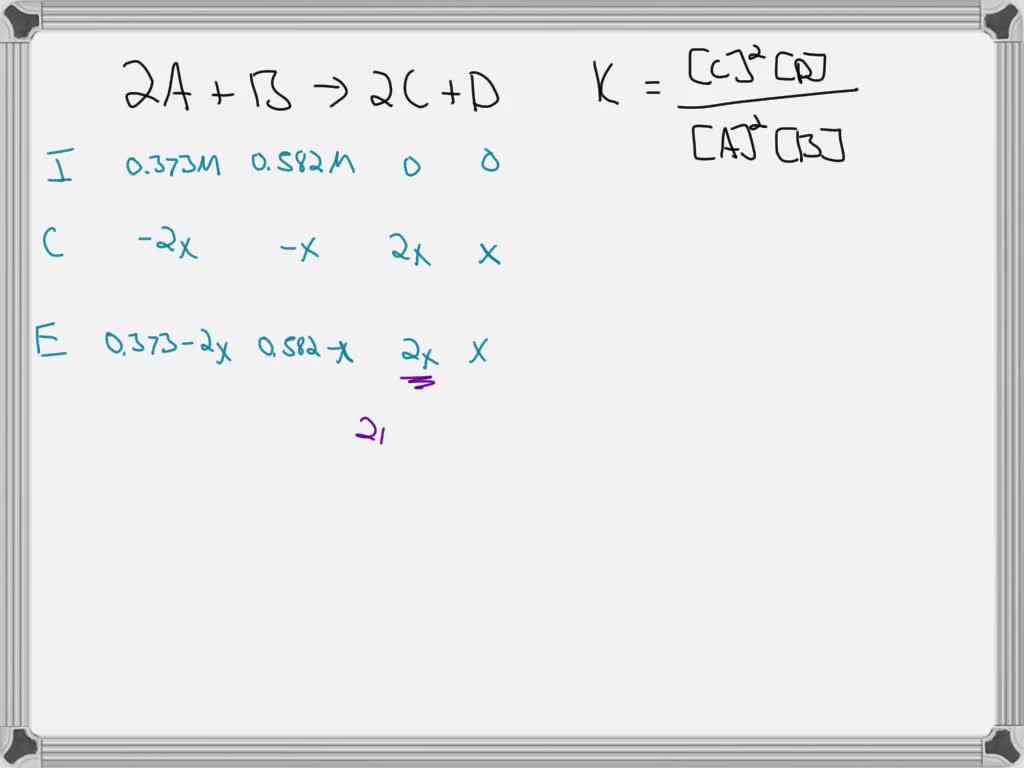 2A + B → 2C + D
K = [C]² [D] / [A]² [B]
I 0.373M 0.582M 0 0
C -2x -x 2x x
E 0.373-2x 0.582-x 2x x
21